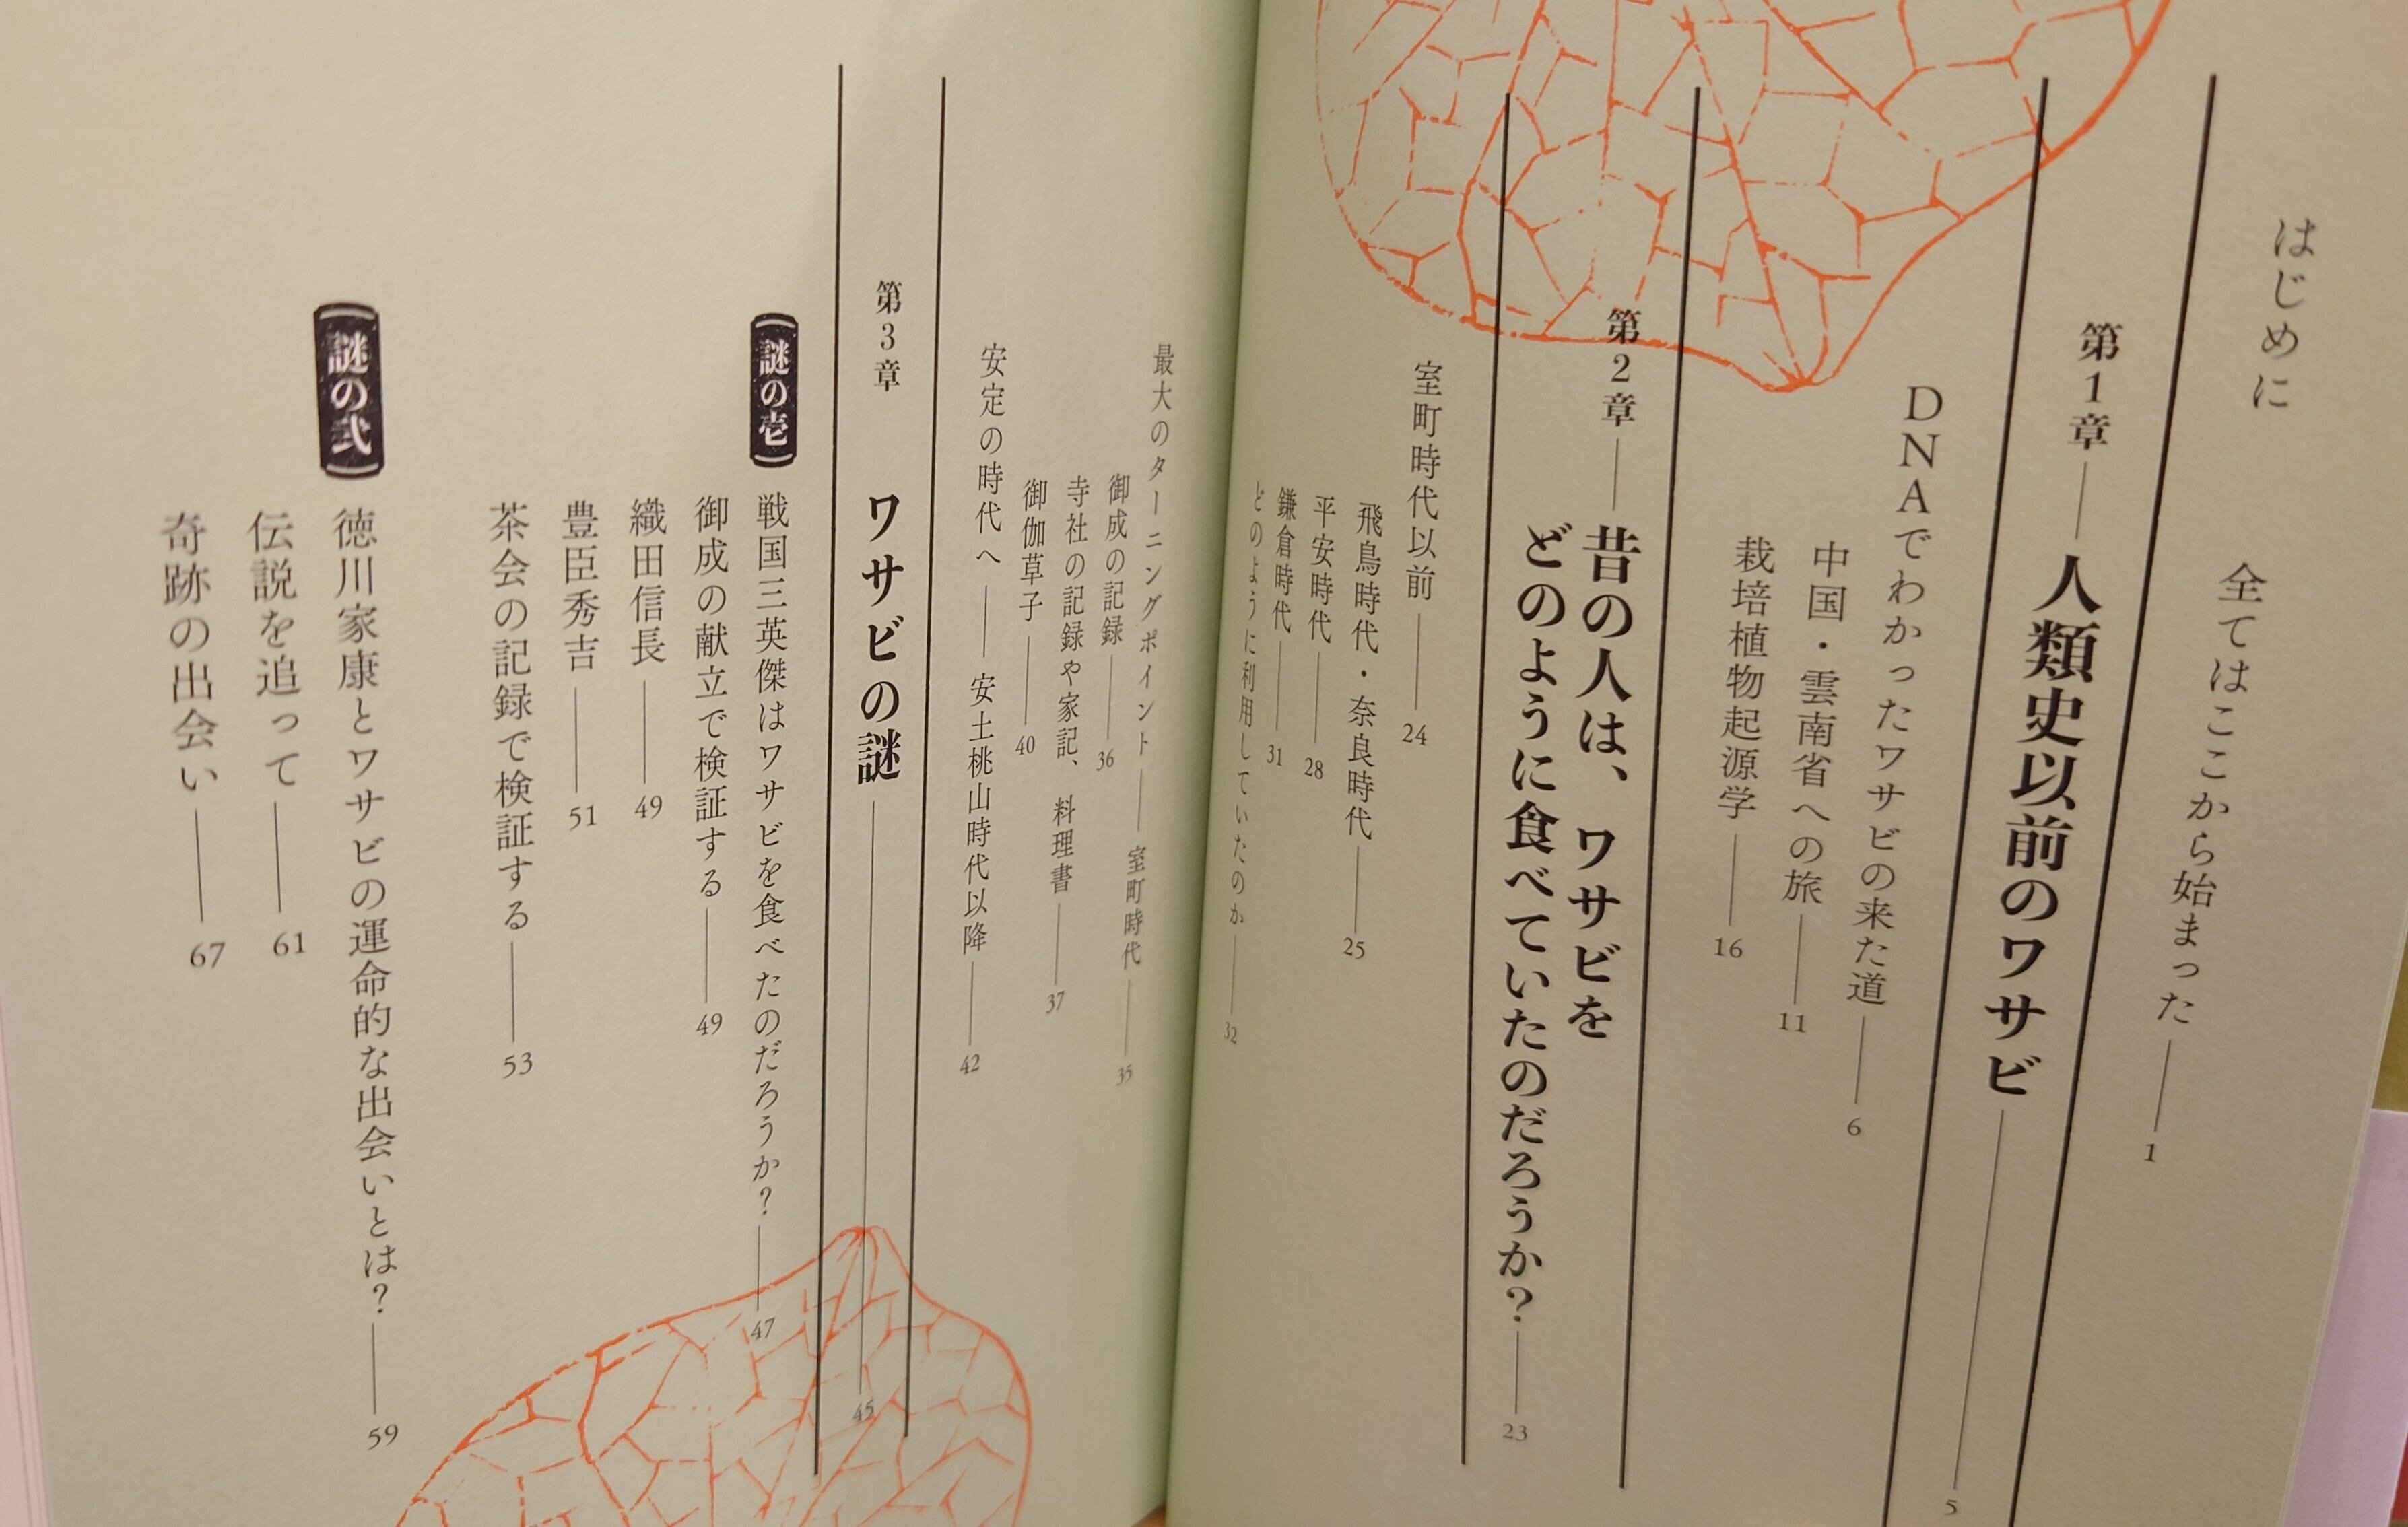 はじめに　全てはここから始まった——1
第1章——人類史以前のワサビ——5
DNAでわかったワサビの来た道——6
中国・雲南省への旅——11
栽培植物起源学——16
第2章——昔の人は、ワサビを
どのように食べていたのだろうか？——23
室町時代以前——24
飛鳥時代・奈良時代——25
平安時代——28
鎌倉時代——31
どのように利用していたのか——32
最大のターニングポイント——室町時代——35
御成の記録——36
寺社の記録や家記、料理書——37
御伽草子——40
安定の時代へ——安土桃山時代以降——42
第3章　ワサビの謎——45
謎の壱　戦国三英傑はワサビを食べたのだろうか？——47
御成の献立で検証する——49
織田信長——49
豊臣秀吉——51
茶会の記録で検証する——53
謎の弐　徳川家康とワサビの運命的な出会いとは？——59
伝説を追って——61
奇跡の出会い——67